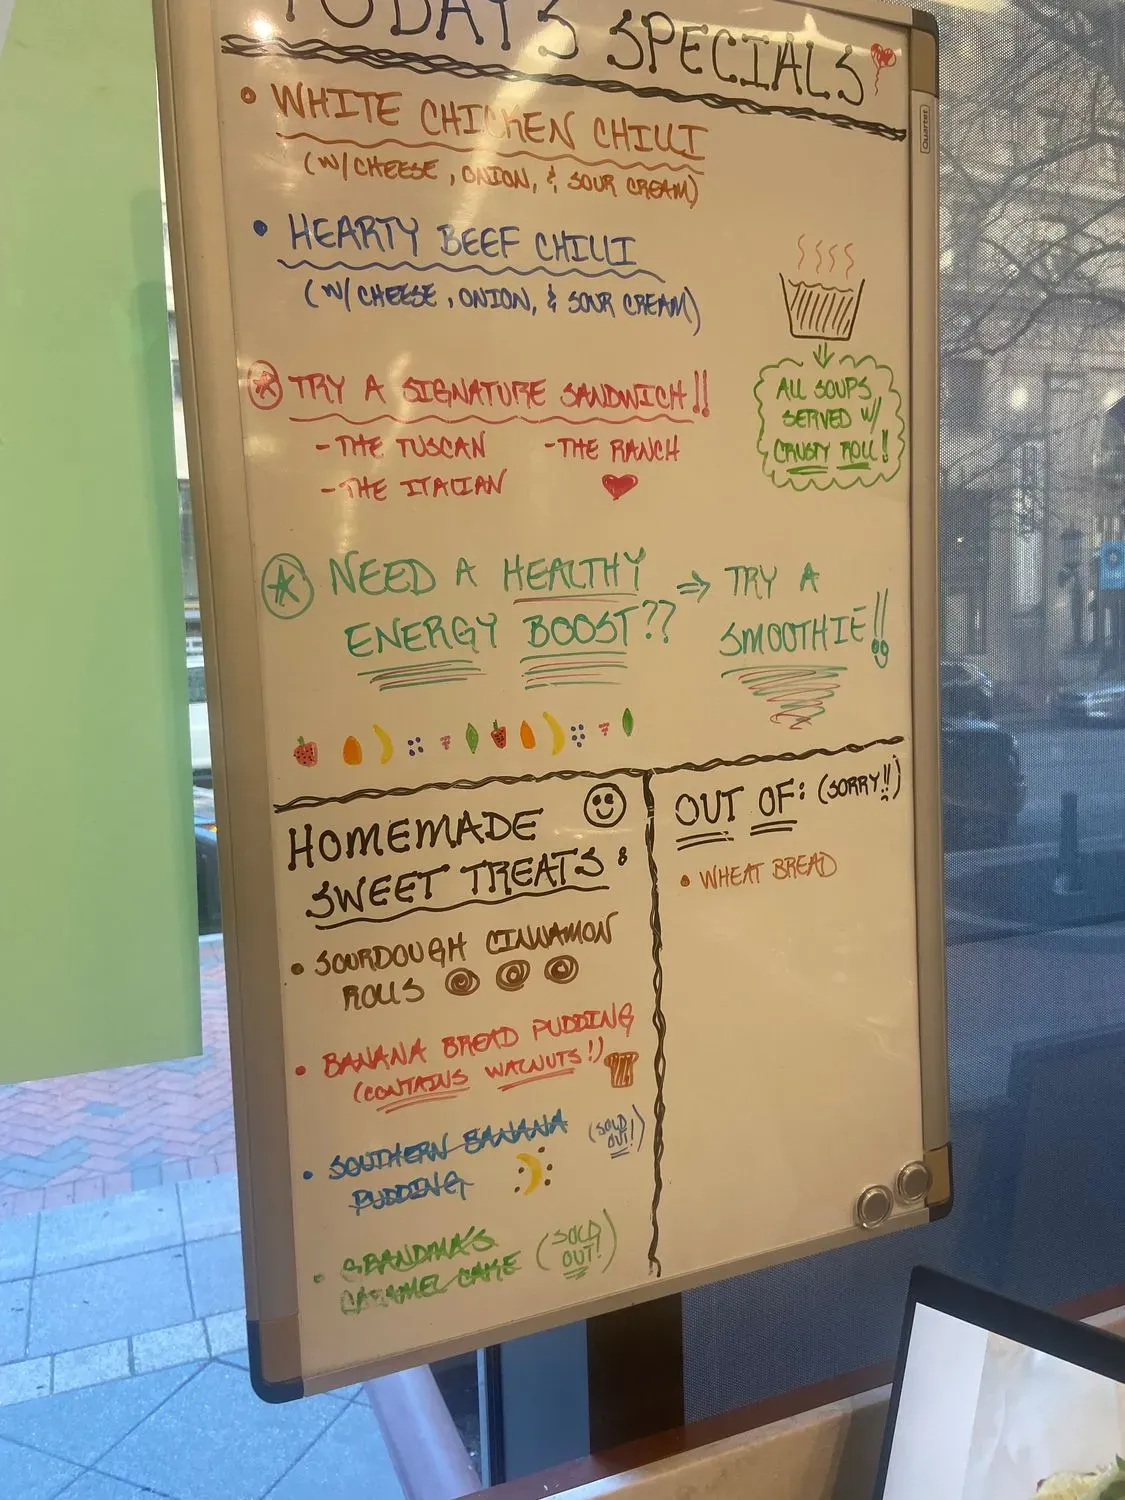 TODAY'S SPECIALS
Quartet
• WHITE CHICKEN CHILLI
(W/ CHEESE, ONION, & SOUR CREAM)
• HEARTY BEEF CHILLI
(W/ CHEESE, ONION, & SOUR CREAM)
ALL SOUPS
SERVED W/
CRUSTY ROLL!
TRY A SIGNATURE SANDWICH!!
- THE TUSCAN - THE RANCH
- THE ITALIAN
NEED A HEALTHY
ENERGY BOOST?? ⇒ TRY A
SMOOTHIE!!
HOMEMADE
SWEET TREATS:
• SOURDOUGH CINNAMON
ROLLS
• BANANA BREAD PUDDING
(CONTAINS WALNUTS!)
• SOUTHERN BANANA
PUDDING
(SOLD
OUT!)
• GRANDMA'S
CARAMEL CAKE
(SOLD
OUT!)
OUT OF: (SORRY!!)
• WHEAT BREAD